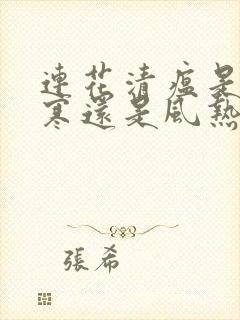 連花清瘟是
寒還是風熱
張希